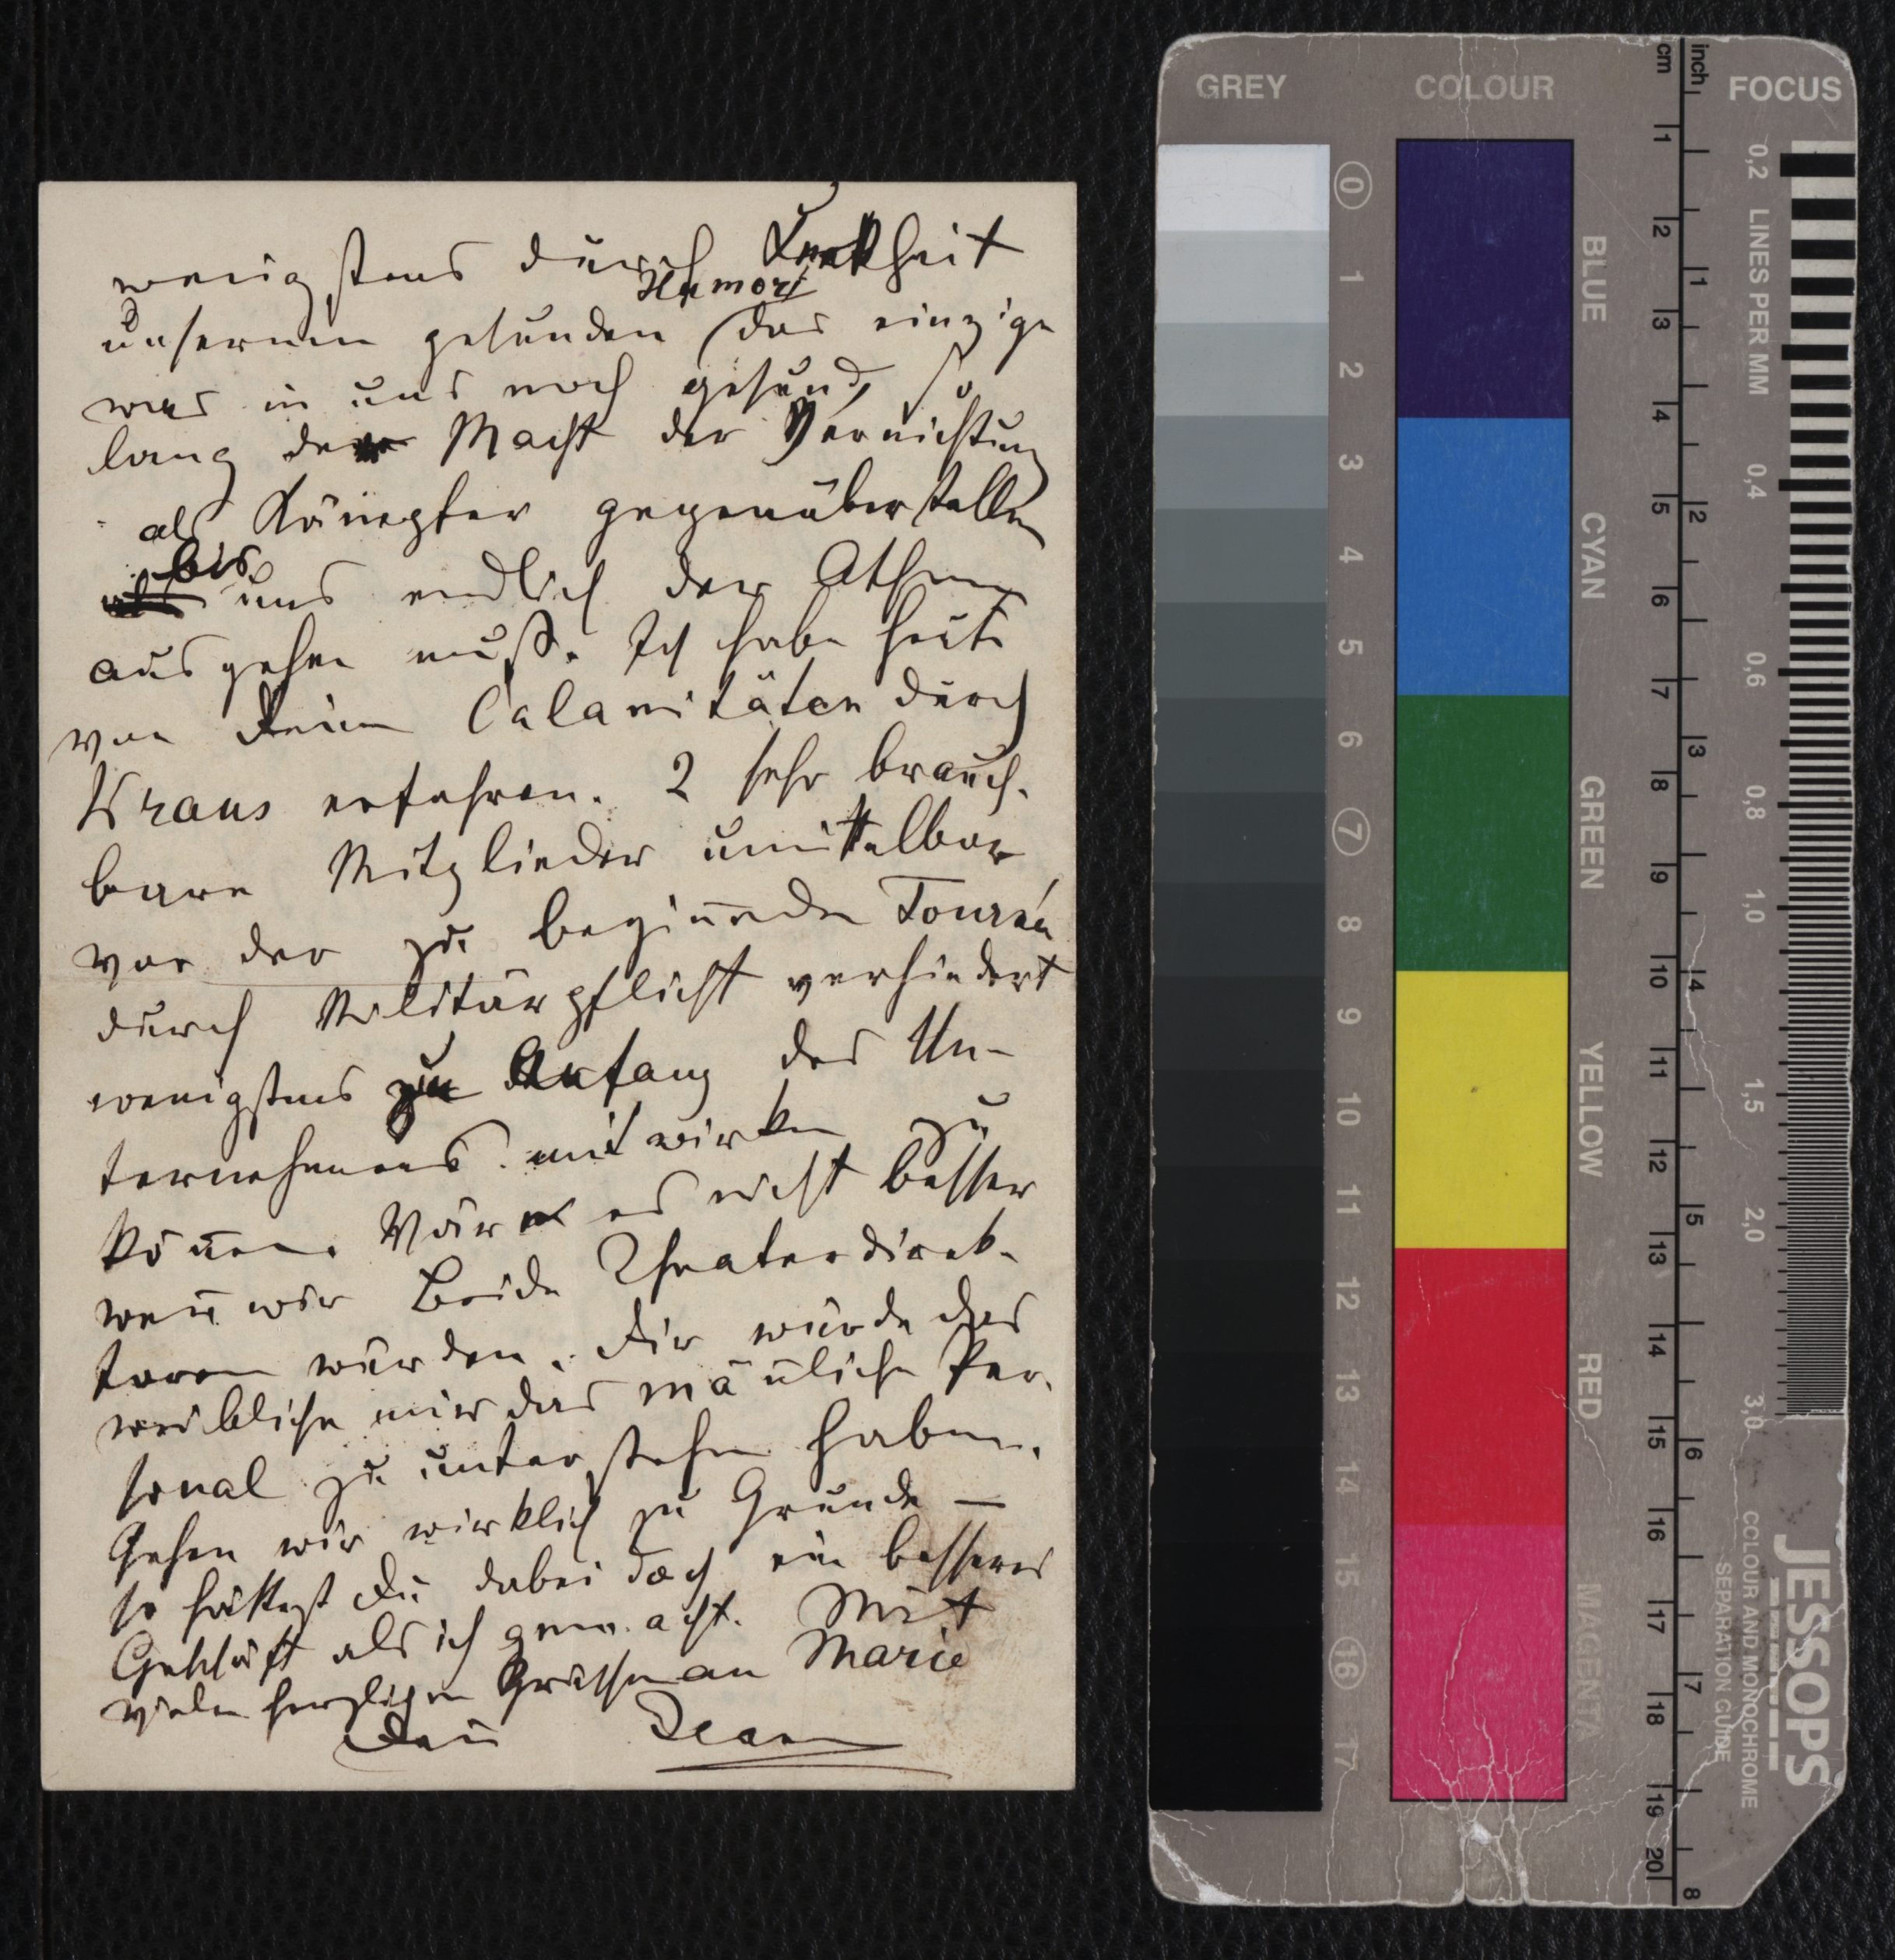 wenigstens durch Keckheit
Humor
unseren gesunden (das einzige
was in uns noch gesund, so
lang der Macht der Vernichtung
als Kämpfer gegenüberstellen
bis uns endlich der Athem
ausgehen muß. Ich habe heute
von Deinen Calamitäten durch
Kraus erfahren. 2 sehr brauch-
bare Mitglieder unmittelbar
vor der zu beginnenden Tournée
durch Militärpflicht verhindert
wenigstens zu Anfang des Un-
ternehmens mitwirken zu
können. Wär es nicht besser
wenn wir Beide Theaterdirek-
toren würden. Dir würde das
weibliche mir das männliche Per-
sonal zu unterstehen haben.
Gehen wir wirklich zu Grunde —
so hättest Du dabei doch ein besseres
Geschäft als ich gemacht. Mit
vielen herzlichen Grüssen an Marie
Dein Jean
GREY COLOUR cm inch FOCUS
0 1 2 3 4 5 6 7 8 9 10 11 12 13 14 15 16 17
BLUE
CYAN
GREEN
YELLOW
RED
MAGENTA
1 2 3 4 5 6 7 8 9 10 11 12 13 14 15 16 17 18 19 20
1 2 3 4 5 6 7 8
0,2 LINES PER MM 0,4 0,6 0,8 1,0 1,5 2,0 3,0
JESSOPS
COLOUR AND MONOCHROME
SEPARATION GUIDE